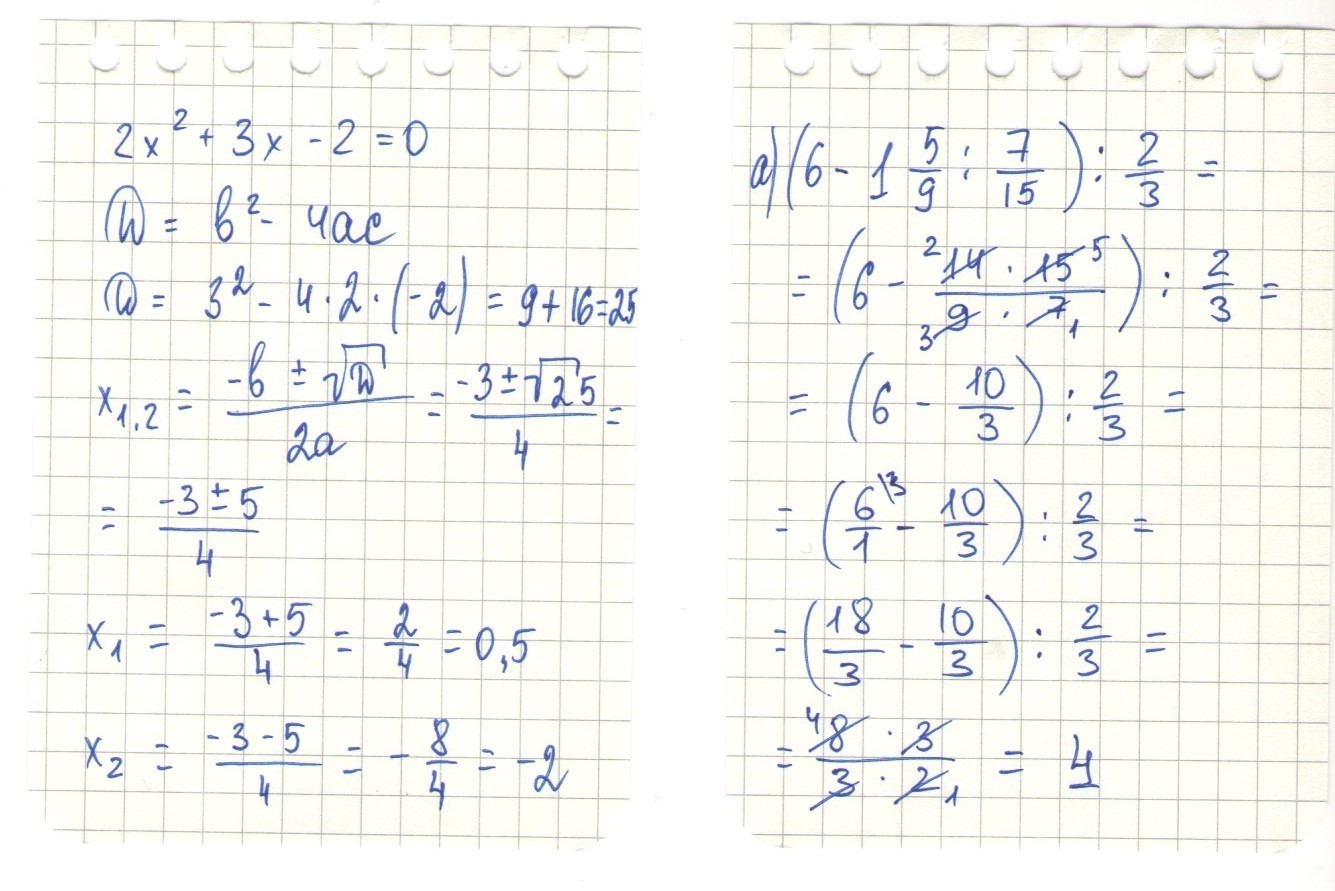 2x² + 3x - 2 = 0
D = b² - 4ac
D = 3² - 4·2·(-2) = 9 + 16 = 25
x₁,₂ = (-b ± √D)/(2a) = (-3 ± √25)/4 =
= (-3 ± 5)/4
x₁ = (-3 + 5)/4 = 2/4 = 0,5
x₂ = (-3 - 5)/4 = -8/4 = -2
а) (6 - 1 5/9 : 7/15) : 2/3 =
= (6 - (²14 · 15⁵)/(₃9 · 7₁)) : 2/3 =
= (6 - 10/3) : 2/3 =
= (6/1 \³ - 10/3) : 2/3 =
= (18/3 - 10/3) : 2/3 =
= (⁴8 · 3)/(3 · 2₁) = 4